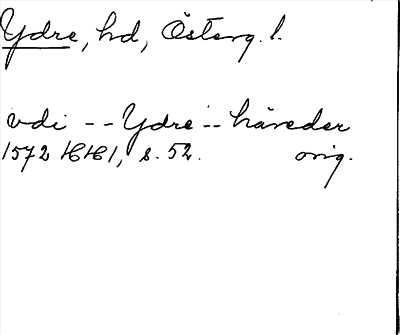 Ydre, hd, Österg. l.
vdi -- Ydre -- häreder
1572 HHI, s. 52. orig.